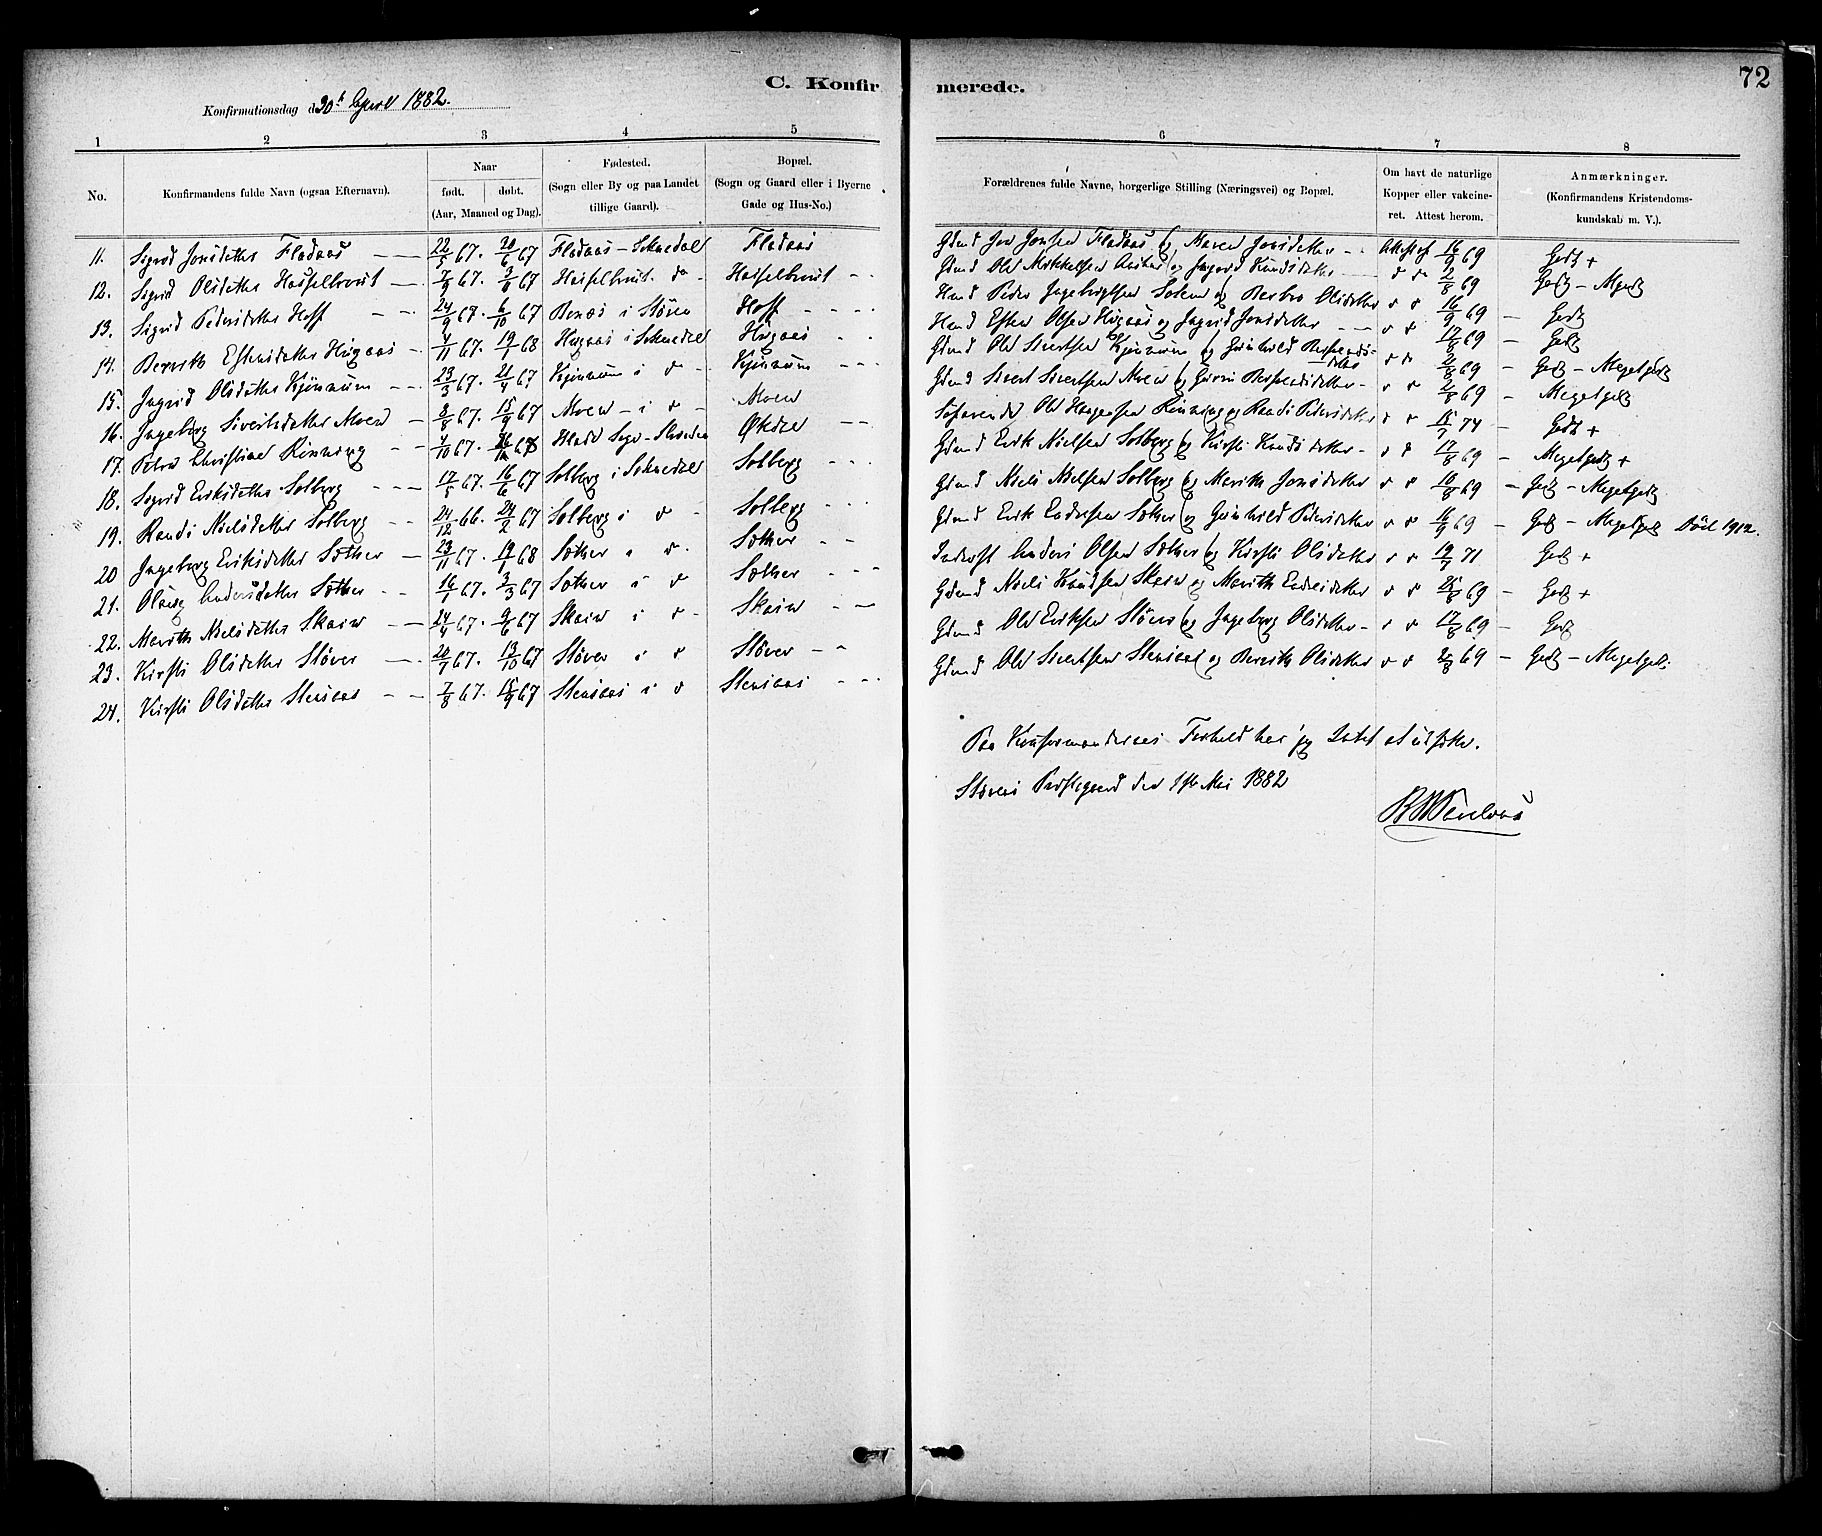 C. Konfirmerede.
72
Konfirmationsdag d. 30te April 1882.
1 2 3 4 5 6 7 8
No. Konfirmandens fulde Navn (ogsaa Efternavn). Naar født. døbt. (Aar, Maaned og Dag). Fødested. (Sogn eller By og paa Landet tillige Gaard). Bopæl. (Sogn og Gaard eller i Byerne Gade og Hus-No.) Forældrenes fulde Navne, borgerlige Stilling (Næringsvei) og Bopæl. Om havt de naturlige Kopper eller vakcineret. Attest herom. Anmærkninger. (Konfirmandens Kristendomskundskab m. V.).
11. Sigrid Jonsdatter Fladaas 22/5 67. 20/6 67 Fladaas - Soknedal Fladaas Gbmd Jon Jonsen Fladaas og Maren Jonsdatter Attest af 16/9 69 Godt +
12. Sigrid Olsdatter Hasselkvist 7/9 67. 67 Hasselkvist do Hasselkvist Gbmd Ole Mikkelsen og Ingrid Knudsdatter d d 2/8 69 Godt - Mgodt
13. Sigrid Pedersdatter Hoff 24/9 67. 6/10 67 i Støren Hoff Hmd Peder Ingebrigtsen og Berbro Olsdatter d d 16/9 69 - Godt
14. Bereth Estensdatter Haugaas 4/11 67. 19/1 68 Haugaas i Soknedal Haugaas Hmd Esten Olsen Haugaas og Ingrid Jonsdatter d d 17/8 69 - Godt
15. Ingrid Olsdatter Kjønnum 23/3 67. 21/4 67 Kjønnum i d Kjønnum Gbmd Ole Sivertsen Kjønnum og Gunhild d d 2/8 69 - Godt - Megetgodt
16. Ingeborg Sivertsdatter Moen 3/8 67. 15/9 67 Moen - i d Moen Gbmd Sivert Sivertsen Moen og d d 2/8 69 - Megetgodt
17. Petra Christine Rinning 4/10 67. Ole Haagensen Rinning og Randi Pedersdatter d d 15/7 74 - Godt +
18. Sigrid Eriksdatter Solberg 17/5 67. 16/6 67 Solberg i Soknedal Solberg Gbmd Erik Nielsen Solberg og Kirsti Knudsdatter d d 17/8 69 - Megetgodt +
19. Randi Nielsdatter Solberg 24/12 66. 24/2 67 Solberg i d Solberg Gbmd Niels Nielsen Solberg og Marith Jonsdatter d d 10/8 69 - Godt - Megetgodt
20 Ingeborg Eriksdatter Sæther 23/11 67. 19/1 68 Sæther i d Sæther Gbmd Erik Endresen Sæther og Gunhild Pedersdatter d d 16/9 69 - Godt - Megetgodt Død 1912.
21. Olaug Andersdatter Sæther 16/1 67. 3/3 67 Sæther i d Sæther Inderst Anders Olsen Sæther og Kirsti Olsdatter d d 19/7 71 Godt +
22. Marith Nielsdatter Skaiw 24/4 67. 9/6 67 Skaiw i d Skaiw Gbmd Niels Knudsen Skaiw og Marith Endresdatter d d 69 - Godt +
23. Kirsti Olsdatter Støver 20/7 67. 13/10 67 Støver i d Støver Gbmd Ole Eriksen Støver og Ingeborg Olsdatter d d 17/8 69 - Godt
24. Kirsti Olsdatter Stensaas 7/8 67. 15/9 67 Stensaas i d Stensaas Gbmd Ole Sivertsen Stensaas og Bereth Olsdatter d d 2/8 69 - Godt - Megetgodt
Paa Konfirmandernes Forhold har jeg Intet at udsætte.
Størens Præstegaard den 1ste Mai 1882